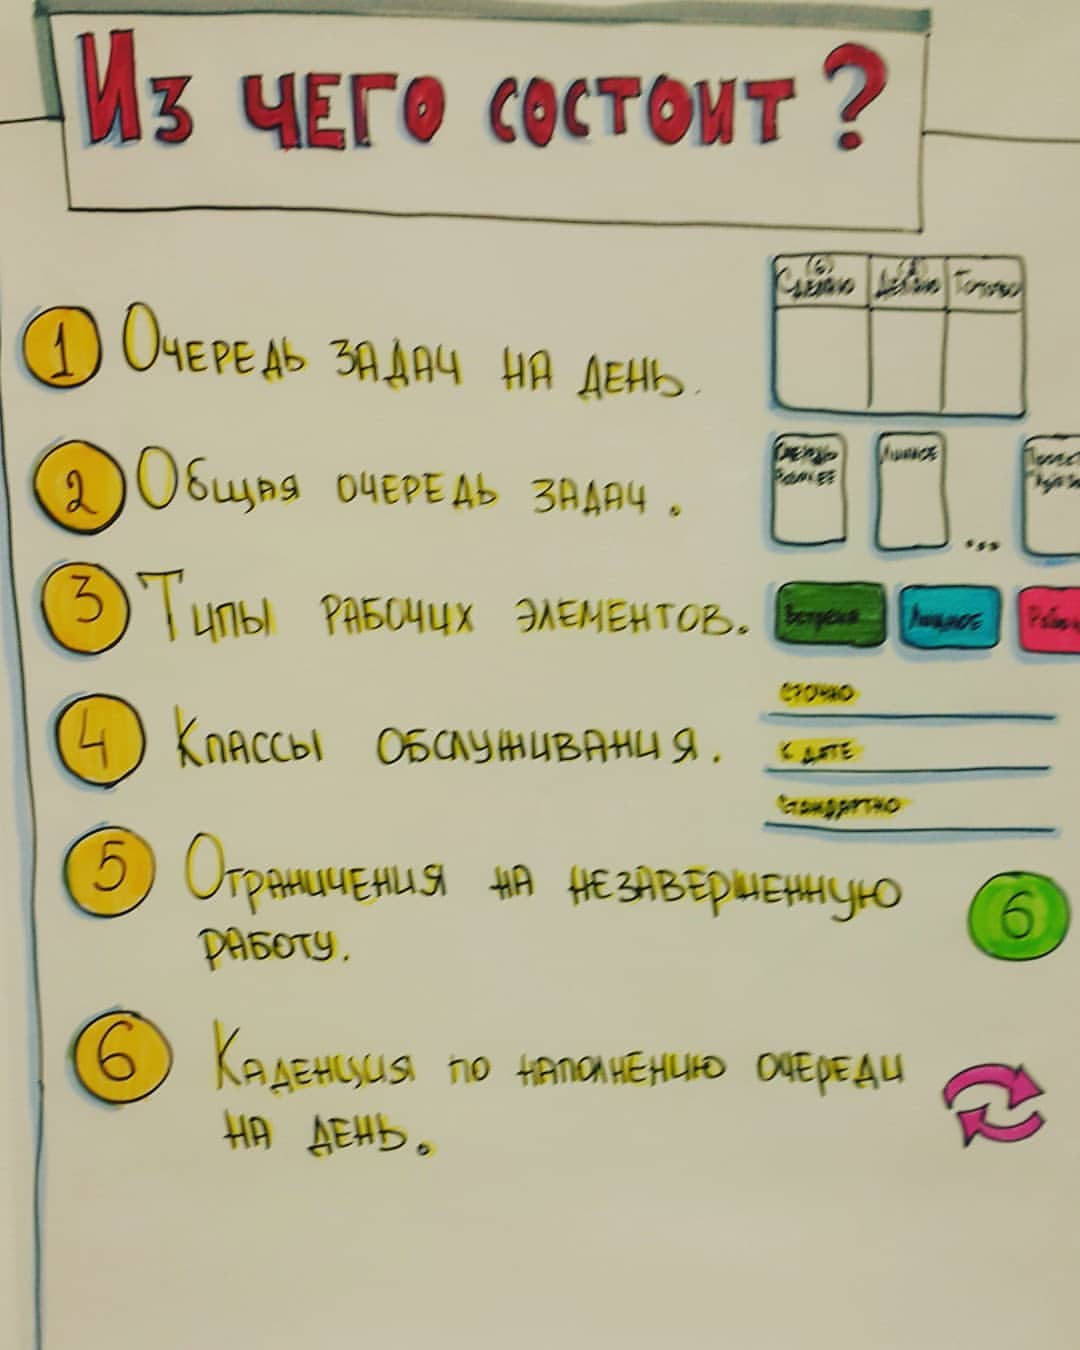 Из чего состоит?
(6)
Сделаю Делаю Готово
1 Очередь задач на день.
2 Общая очередь задач.
Личное
...
3 Типы рабочих элементов.
Встречи Личное
4 Классы обслуживания.
Срочно
К дате
Стандартно
5 Ограничения на незавершенную
работу.
6
6 Каденция по наполнению очереди
на день.